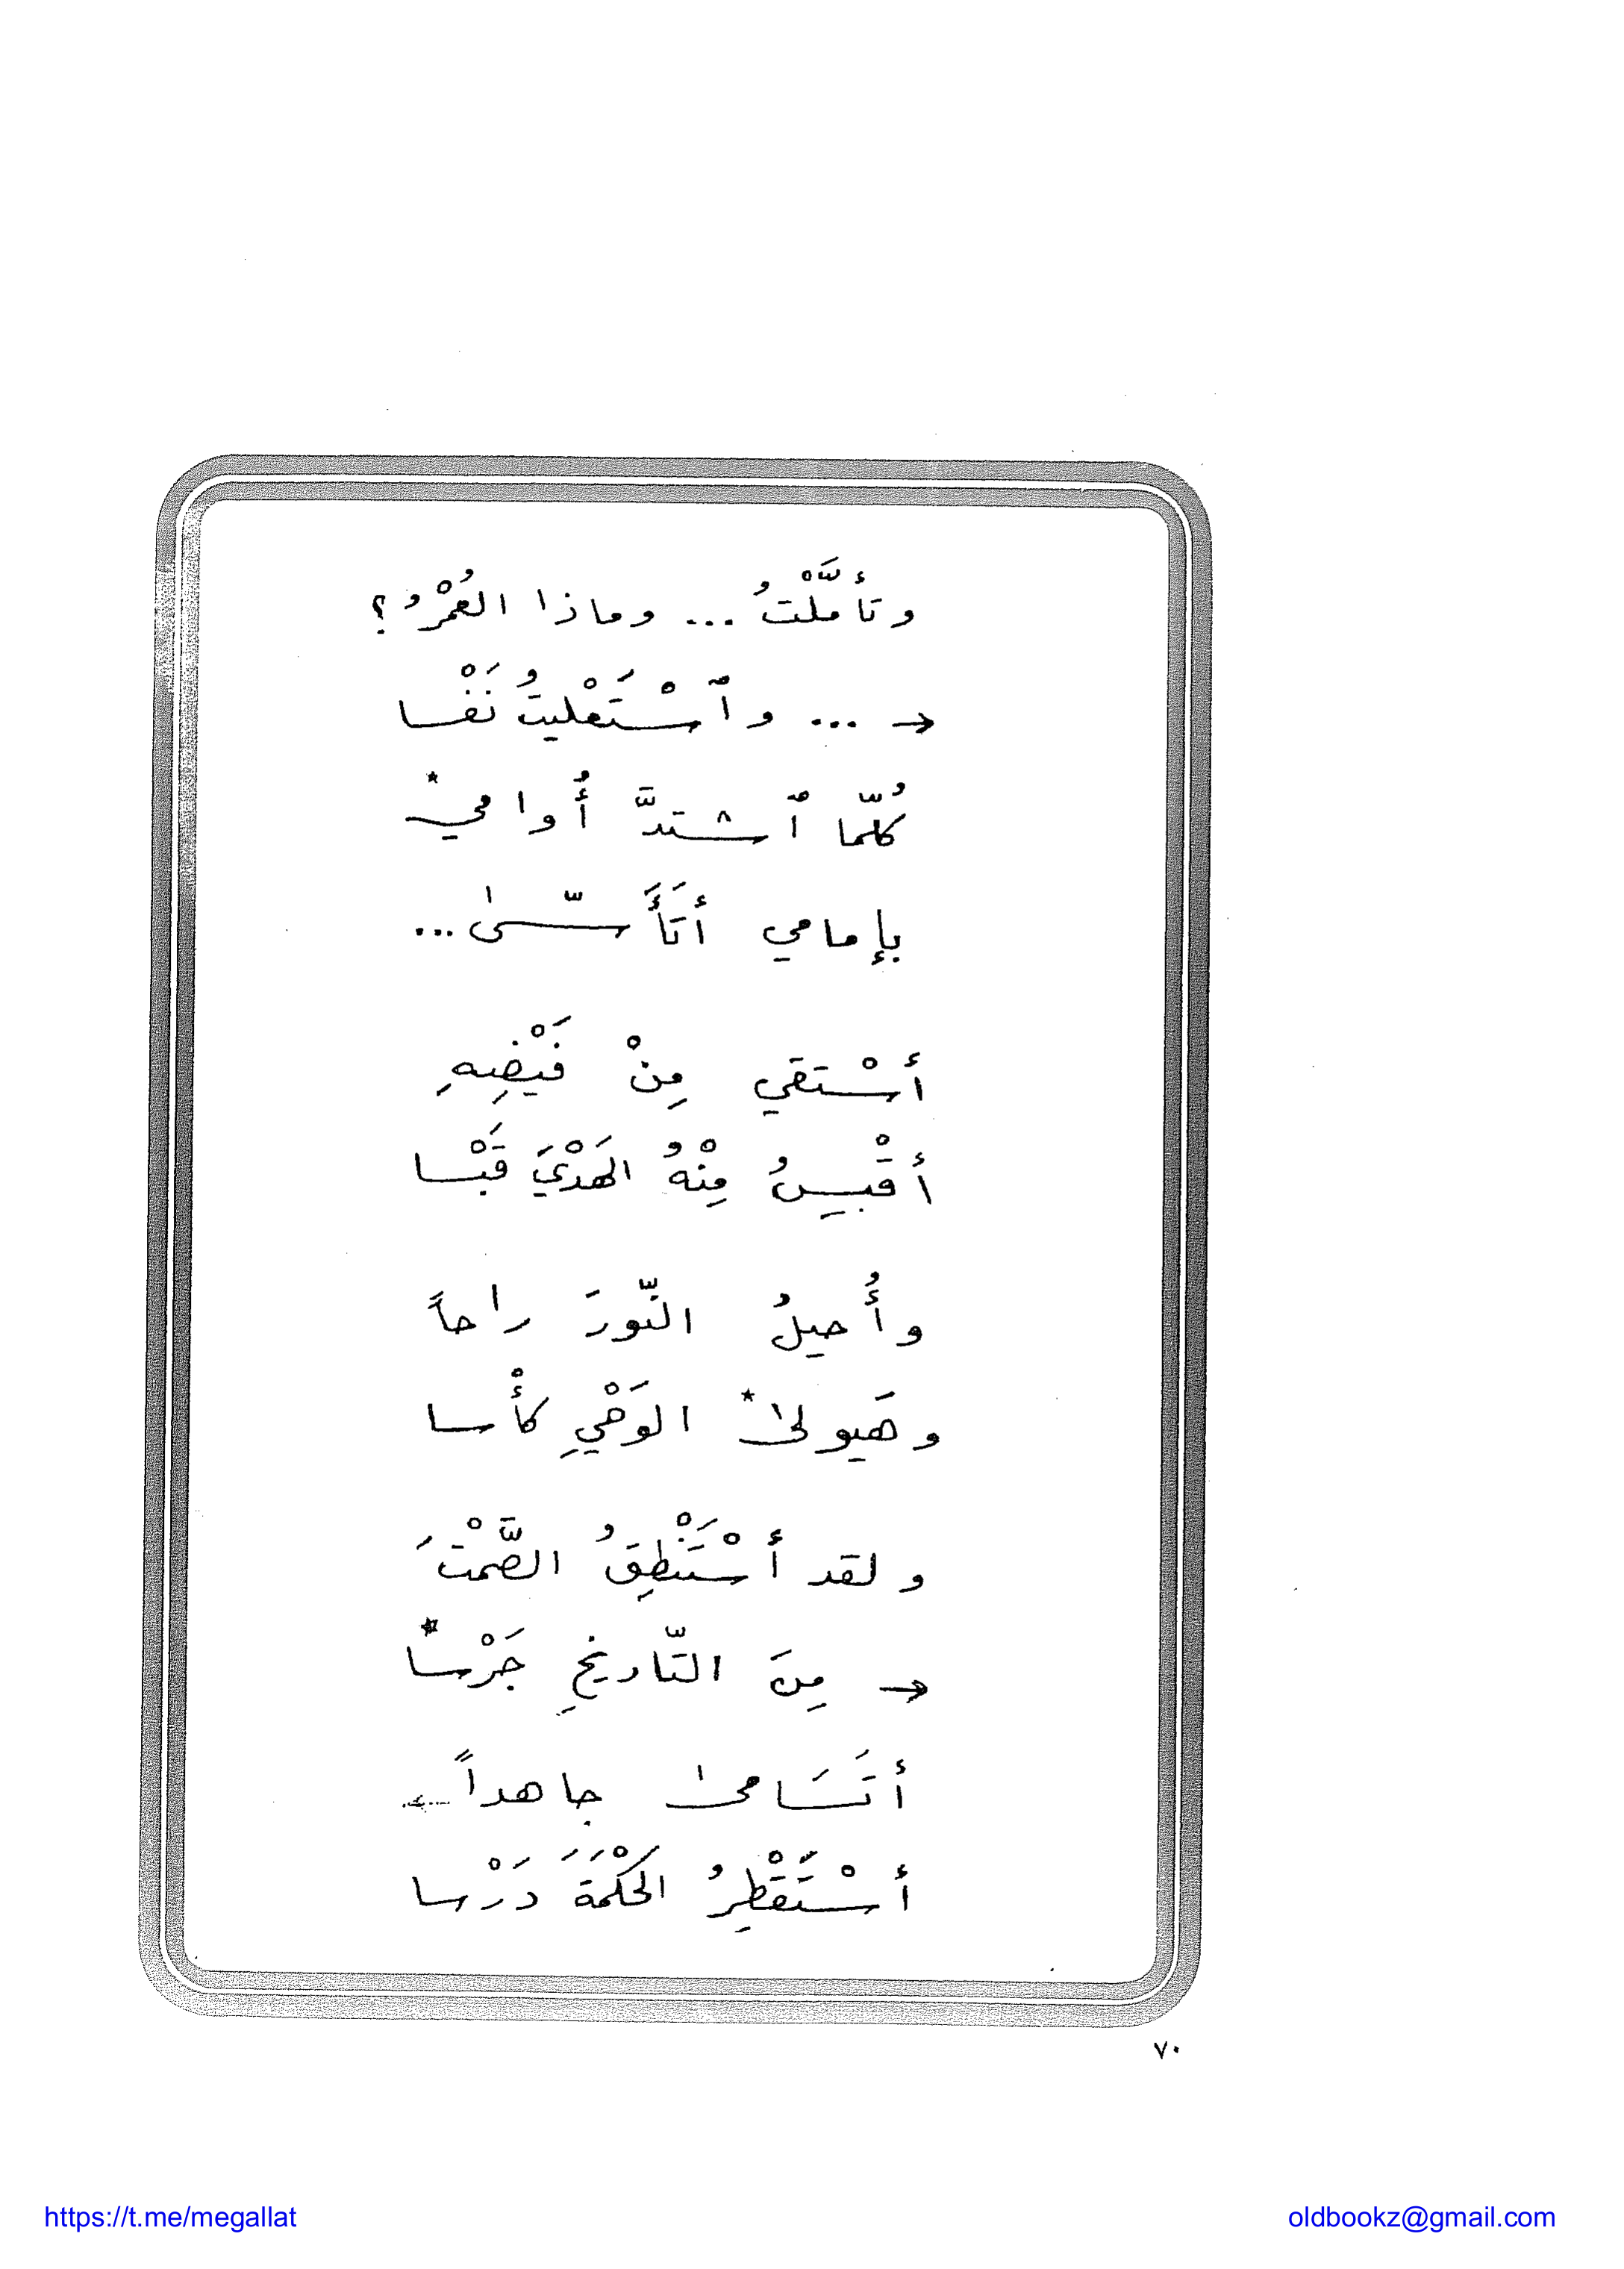 وتأمَّلْتُ ... وماذا العُمْرُ ؟
← ... وٱسْتَعْليتُ نَفْسا
كُلّما ٱشتدَّ أُوامي*
بإمامي أتَأَسّىٰ ...
أسْتقي مِنْ فَيْضِهِ
أقْبِسُ مِنْهُ الهَدْيَ قَبْسا
وأُحيلُ النّورَ راحاً
وهَيولىٰ* الوَحْيِ كأْسا
ولقد أسْتَنْطِقُ الصَّمْتَ
← مِنَ التّاريخِ جَرْسا*
أتَسَامىٰ جاهداً ...
أسْتَقْطِرُ الحكْمَةَ دَرْسا
٧٠
https://t.me/megallat
oldbookz@gmail.com